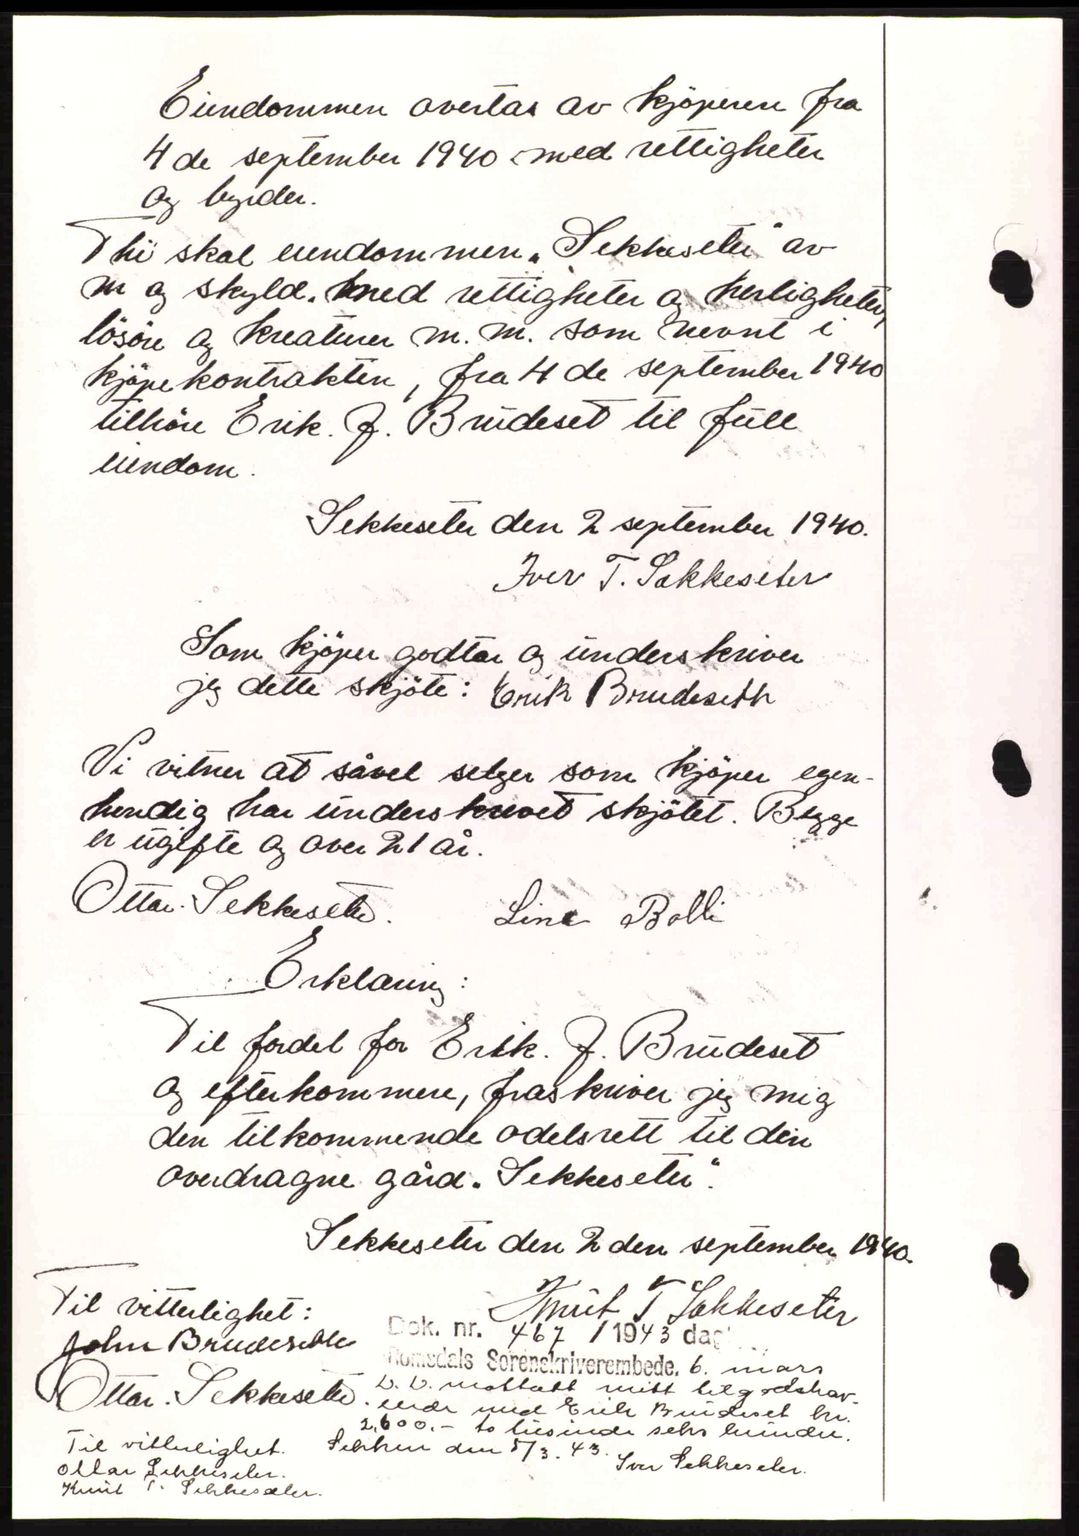 Eiendommen overtas av kjöperen fra
4 de september 1940 med rettigheter
og byrder.
Thi skal eiendommen "Sekkeseter" av
m og skyld. med rettigheter og herligheter,
lösöre og kreaturer m. m. som nevnt i
kjöpekontrakten, fra 4 de september 1940
tilhöre Erik. J. Brudeset til full
eiendom.
Sekkeseter den 2 september 1940.
Iver T. Sekkeseter
Som kjöper godtar og underskriver
jeg dette skjöte: Erik Brudeseth
Vi vitner at såvel selger som kjöper egen-
hendig har underskrevet skjötet. Begge
er ugifte og over 21 år.
Ottar. Sekkeseter. Line Bolli
Erklæring:
Til fordel for Erik. J. Brudeset
og efterkommere, fraskriver jeg mig
den tilkommende odelsrett til den
overdragne gård "Sekkeseter".
Sekkeseter den 2 den september 1940.
Til vitterlighet: Knut T Sekkeseter
John Brudeseth Dok. nr. 467 / 1943 dag
Romsdals Sorenskriverembede. 6. mars
Ottar. Sekkeseter. D. D. mottatt mitt tilgodehav-
ende med Erik Brudeset kr.
2,600.- to tusinde seks hundre.
Til vitterlighet. Sekken den 5/3. 43.
Ottar Sekkeseter. Iver Sekkeseter.
Knut T. Sekkeseter.